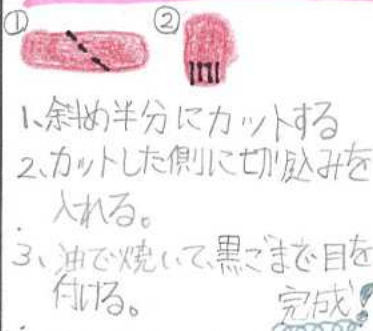 ① ②
1、斜め半分にカットする
2、カットした側に切り込みを
入れる。
3、油で焼いて、黒ごまで目を
付ける。
完成!